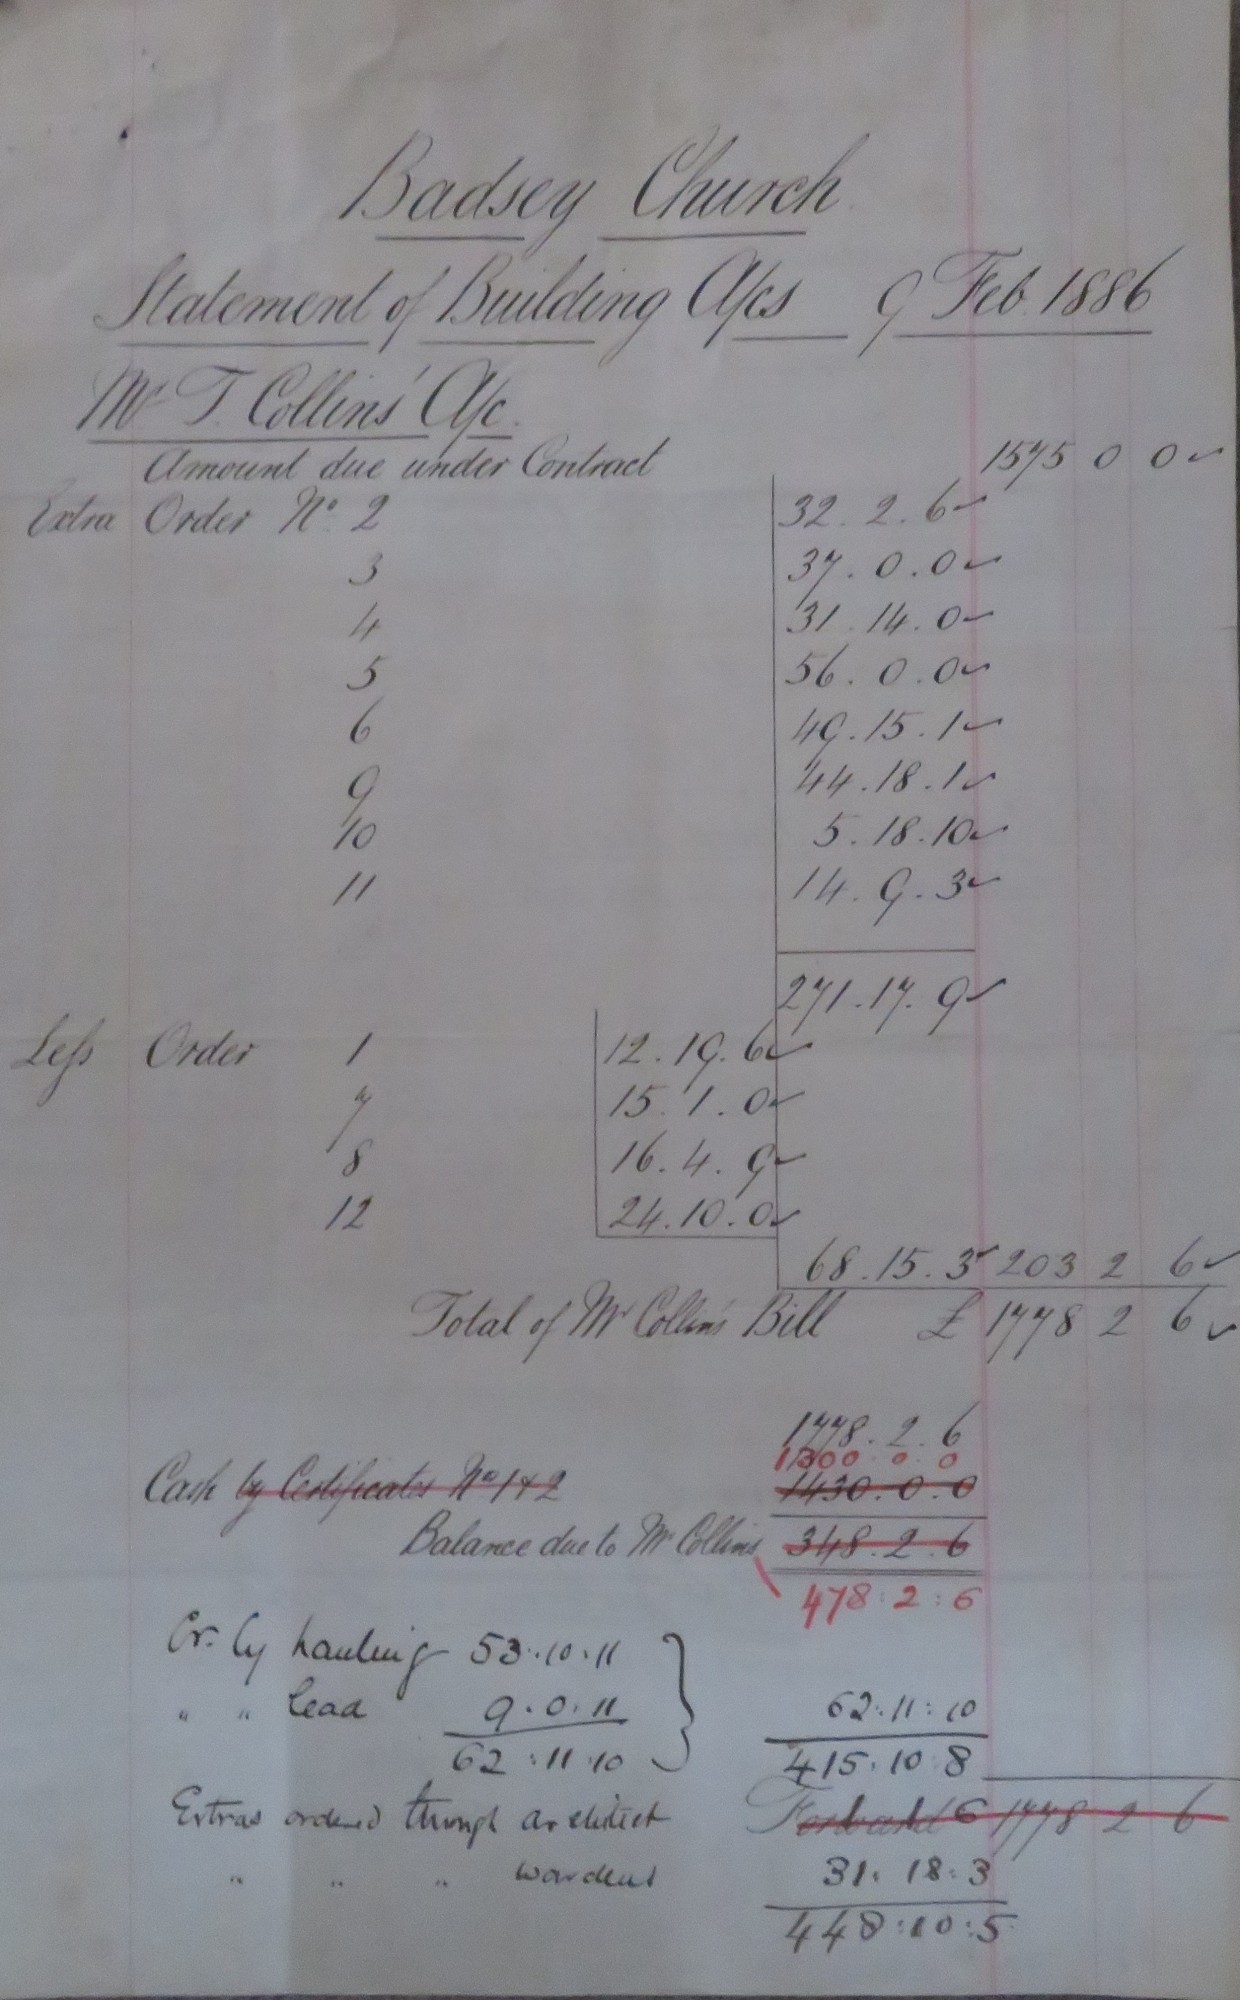 Badsey Church
Statement of Building A/cs 9 Feb. 1886
Mr T. Collins' A/c.
Amount due under Contract 1575 0 0
Extra Order No. 2 32. 2. 6
3 37. 0. 0
4 31 14. 0
5 56. 0. 0
6 49. 15. 1
9 44. 18. 1
10 5. 18. 10
11 14. 9. 3
271. 17. 9
Less Order 1 12. 19. 6
7 15. 1. 0
8 16. 4. 9
12 24. 10. 0
68. 15. 3 203 2 6
Total of Mr Collins' Bill £ 1778 2 6
1778. 2. 6
1300 0. 0
Cash by Certificates Nos 1 & 2 1430. 0. 0
Balance due to Mr Collins 348. 2. 6
478: 2: 6
Cr. by hauling 53. 10. 11
" " lead 9. 0. 11 62: 11: 10
62: 11: 10 415. 10: 8
Extras ordered through architect Forward 1778 2 6
" " " wardens 31: 18: 3
448: 10: 5